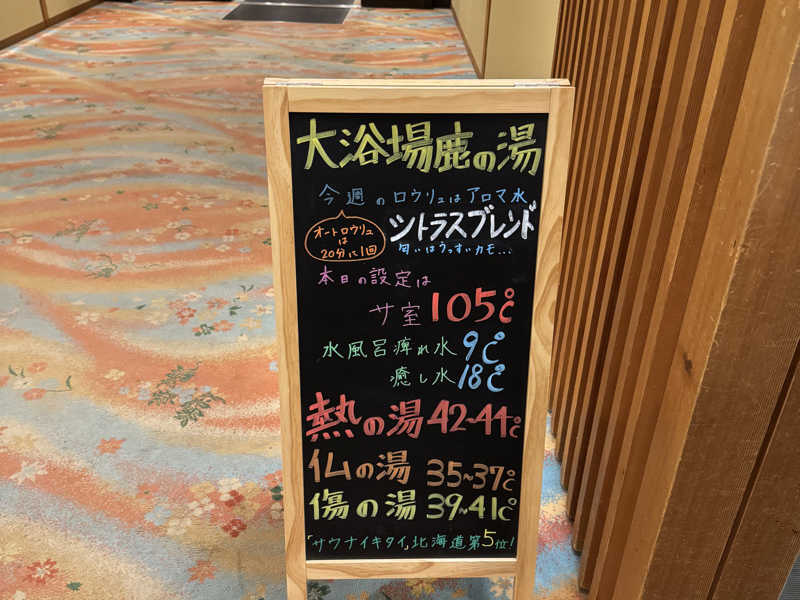 大浴場鹿の湯
今週のロウリュはアロマ水
オートロウリュ
は
20分に1回
ツトラスブレンド
匂いはうっすいカモ...
本日の設定は
サ室 105℃
水風呂痺れ水 9℃
癒し水 18℃
熱の湯 42~44℃
仏の湯 35~37℃
傷の湯 39~41℃
「サウナイキタイ」北海道第5位!